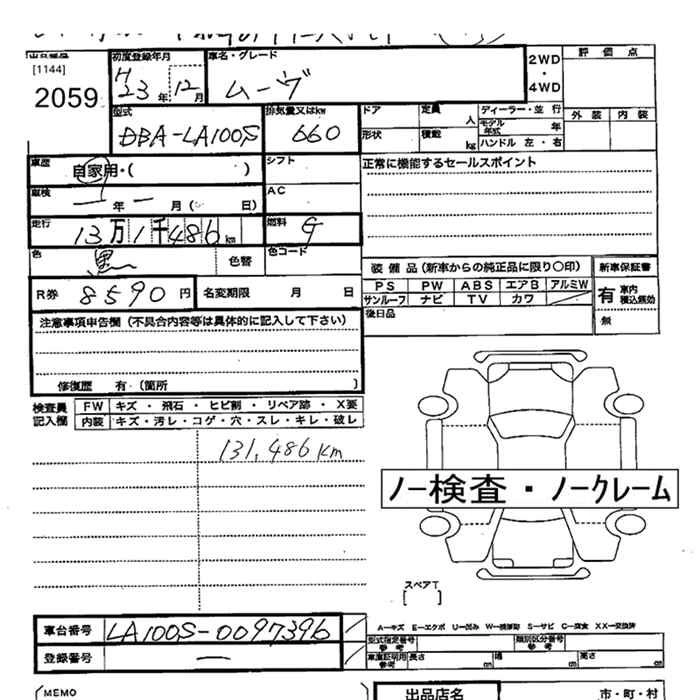 出品番号
[1144]
2059
初度登録年月
H
23 年 12 月
車名・グレード
ムーヴ
2WD
・
4WD
評 価 点
外 装 内 装
型式
DBA-LA100S
排気量又はkw
660
ドア
定員
人
形状
積載
kg
ディーラー・並 行
モデル
年式
年
ハンドル 左 ・ 右
車歴
自家用・( )
シフト
正常に機能するセールスポイント
車検
年 ー 月 ( 日)
AC
走行
13万1千486km
燃料
G
色
黒
色替
色コード
R券 8590 円
名変期限 月 日
装 備 品 (新車からの純正品に限り〇印)
新車保証書
PS PW ABS エアB アルミW
サンルーフ ナビ TV カワ
有 車内
積込無効
無
後日品
注意事項申告欄(不具合内容等は具体的に記入して下さい)
修復歴 有・(箇所 )
検査員
記入欄
FW キズ ・ 飛石 ・ ヒビ割 ・ リペア跡 ・ X要
内装 キズ・汚レ・コゲ・穴・スレ・キレ・破レ
131,486km
ノー検査・ノークレーム
スペアT
[ ]
A―キズ E―エクボ U―凹み W―補修跡 S―サビ C―腐食 XX―交換済
車台番号 LA100S-0097396
登録番号 ー
型式指定番号
参 考
類別区分番号
参 考
車庫証明用
参考
長さ cm
幅 cm
高さ cm
MEMO
出品店名
市・町・村